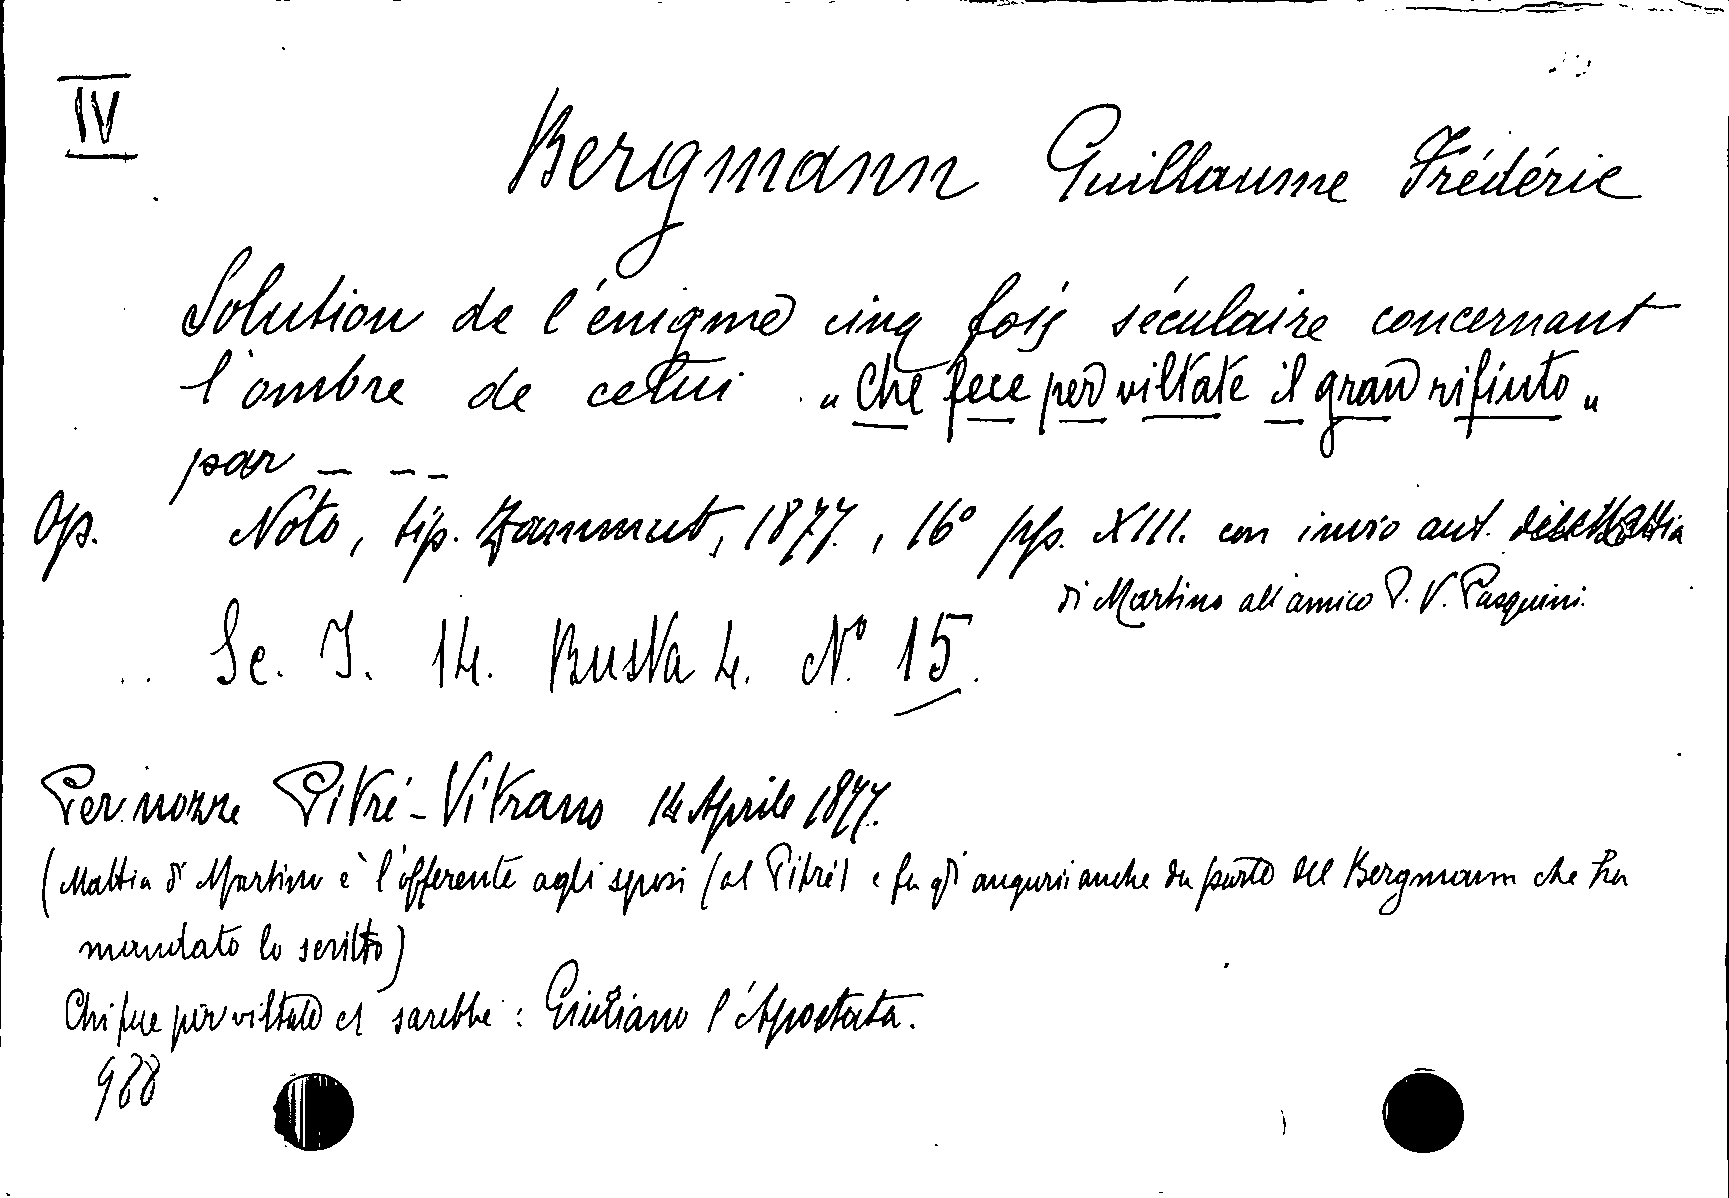 IV
Bergmann Guillaume Frédéric
Solution de l'énigme cinq fois séculaire concernant
l'ombre de celui „ Che fece per viltate il gran rifiuto „
par _ _ _
Op. Noto, tip. Zammit, 1877, 16° pp. XIII. con invio aut. di Mattia
di Martino all'amico P. V. Pasquini.
Sc. I. 14. Busta 4. N° 15.
Per nozze Pitré - Vitrano 14 Aprile 1877.
(Mattia di Martino è l'offerente agli sposi (al Pitré) e fa gli auguri anche da parte del Bergmann che ha
mandato lo scritto)
Chi fece per viltate et sarebbe : Giuliano l'Apostata.
988